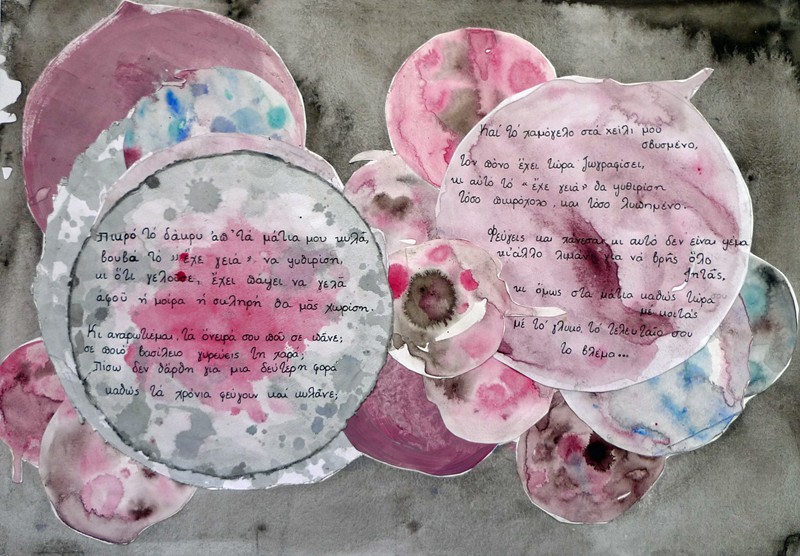 πικρό τό δάκρυ ἀπ' τά μάτια μου κυλᾶ,
βουβά τό »ἔχε γειά«, νά ψυθιρίση,
κι ὅτι γελοῦσε, ἔχει πάψει νά γελᾶ
ἀφοῦ ἡ μοίρα ἡ σκληρή θα μᾶς χωρίση.
Κι ἀναρωτιέμαι, τά ὄνειρά σου ποῦ σε πᾶνε;
σε ποιό βασίλειο γυρεύεις τη χαρά;
Πίσω δεν θἄρθη για μια δεύτερη φορά
καθώς τά χρόνια φεύγουν και κυλᾶνε;
Καί τό χαμόγελο στά χείλη μου
σβυσμένο,
τόν πόνο ἔχει τώρα ζωγραφίσει,
κι αὐτό τό «ἔχε γειά» θα ψυθιρίση
τόσο πικρόχολο, και τόσο λυπημένο.
Φεύγεις και χάνεσαι κι αυτό δεν είναι ψέμα
κι ἄλλο λιμάνι για νά βρῆς ὅλο
ζητᾶς,
κι ὅμως στα μάτια καθώς τώρα
με κοιτᾶς
μέ τό γλυκό, τό τελευταῖο σου
το βλέμα...